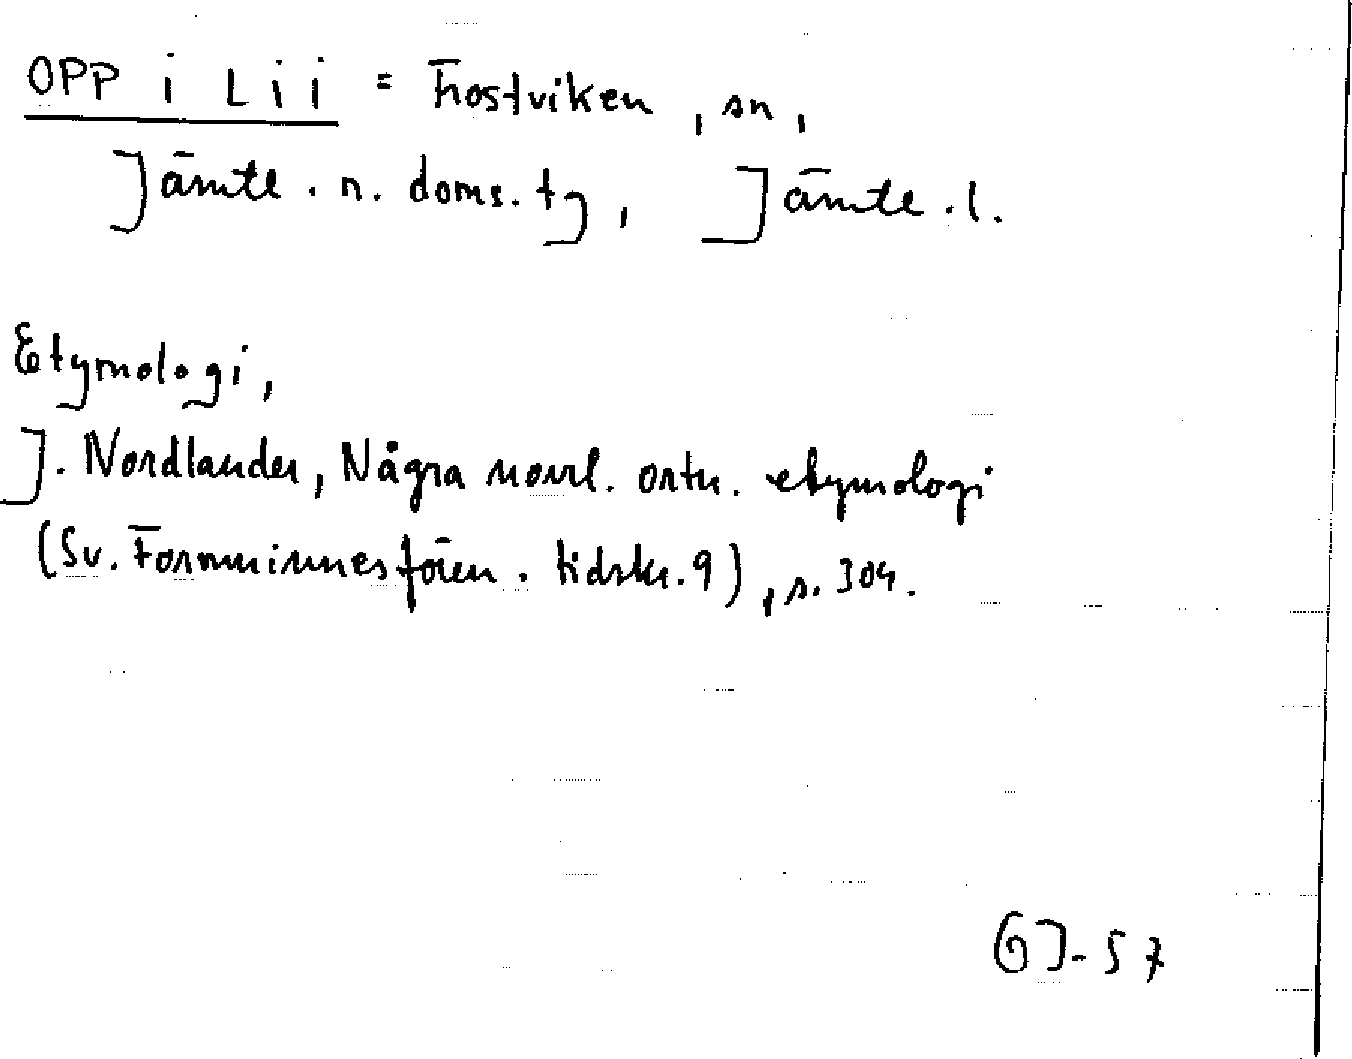 OPP i Lii = Frostviken, sn,
Jämtl. n. doms. tg, Jämtl. l.
Etymologi,
J. Nordlander, Några norrl. ortn. etymologi
(Sv. Fornminnesfören. tidskr. 9), s. 304.
GJ-57